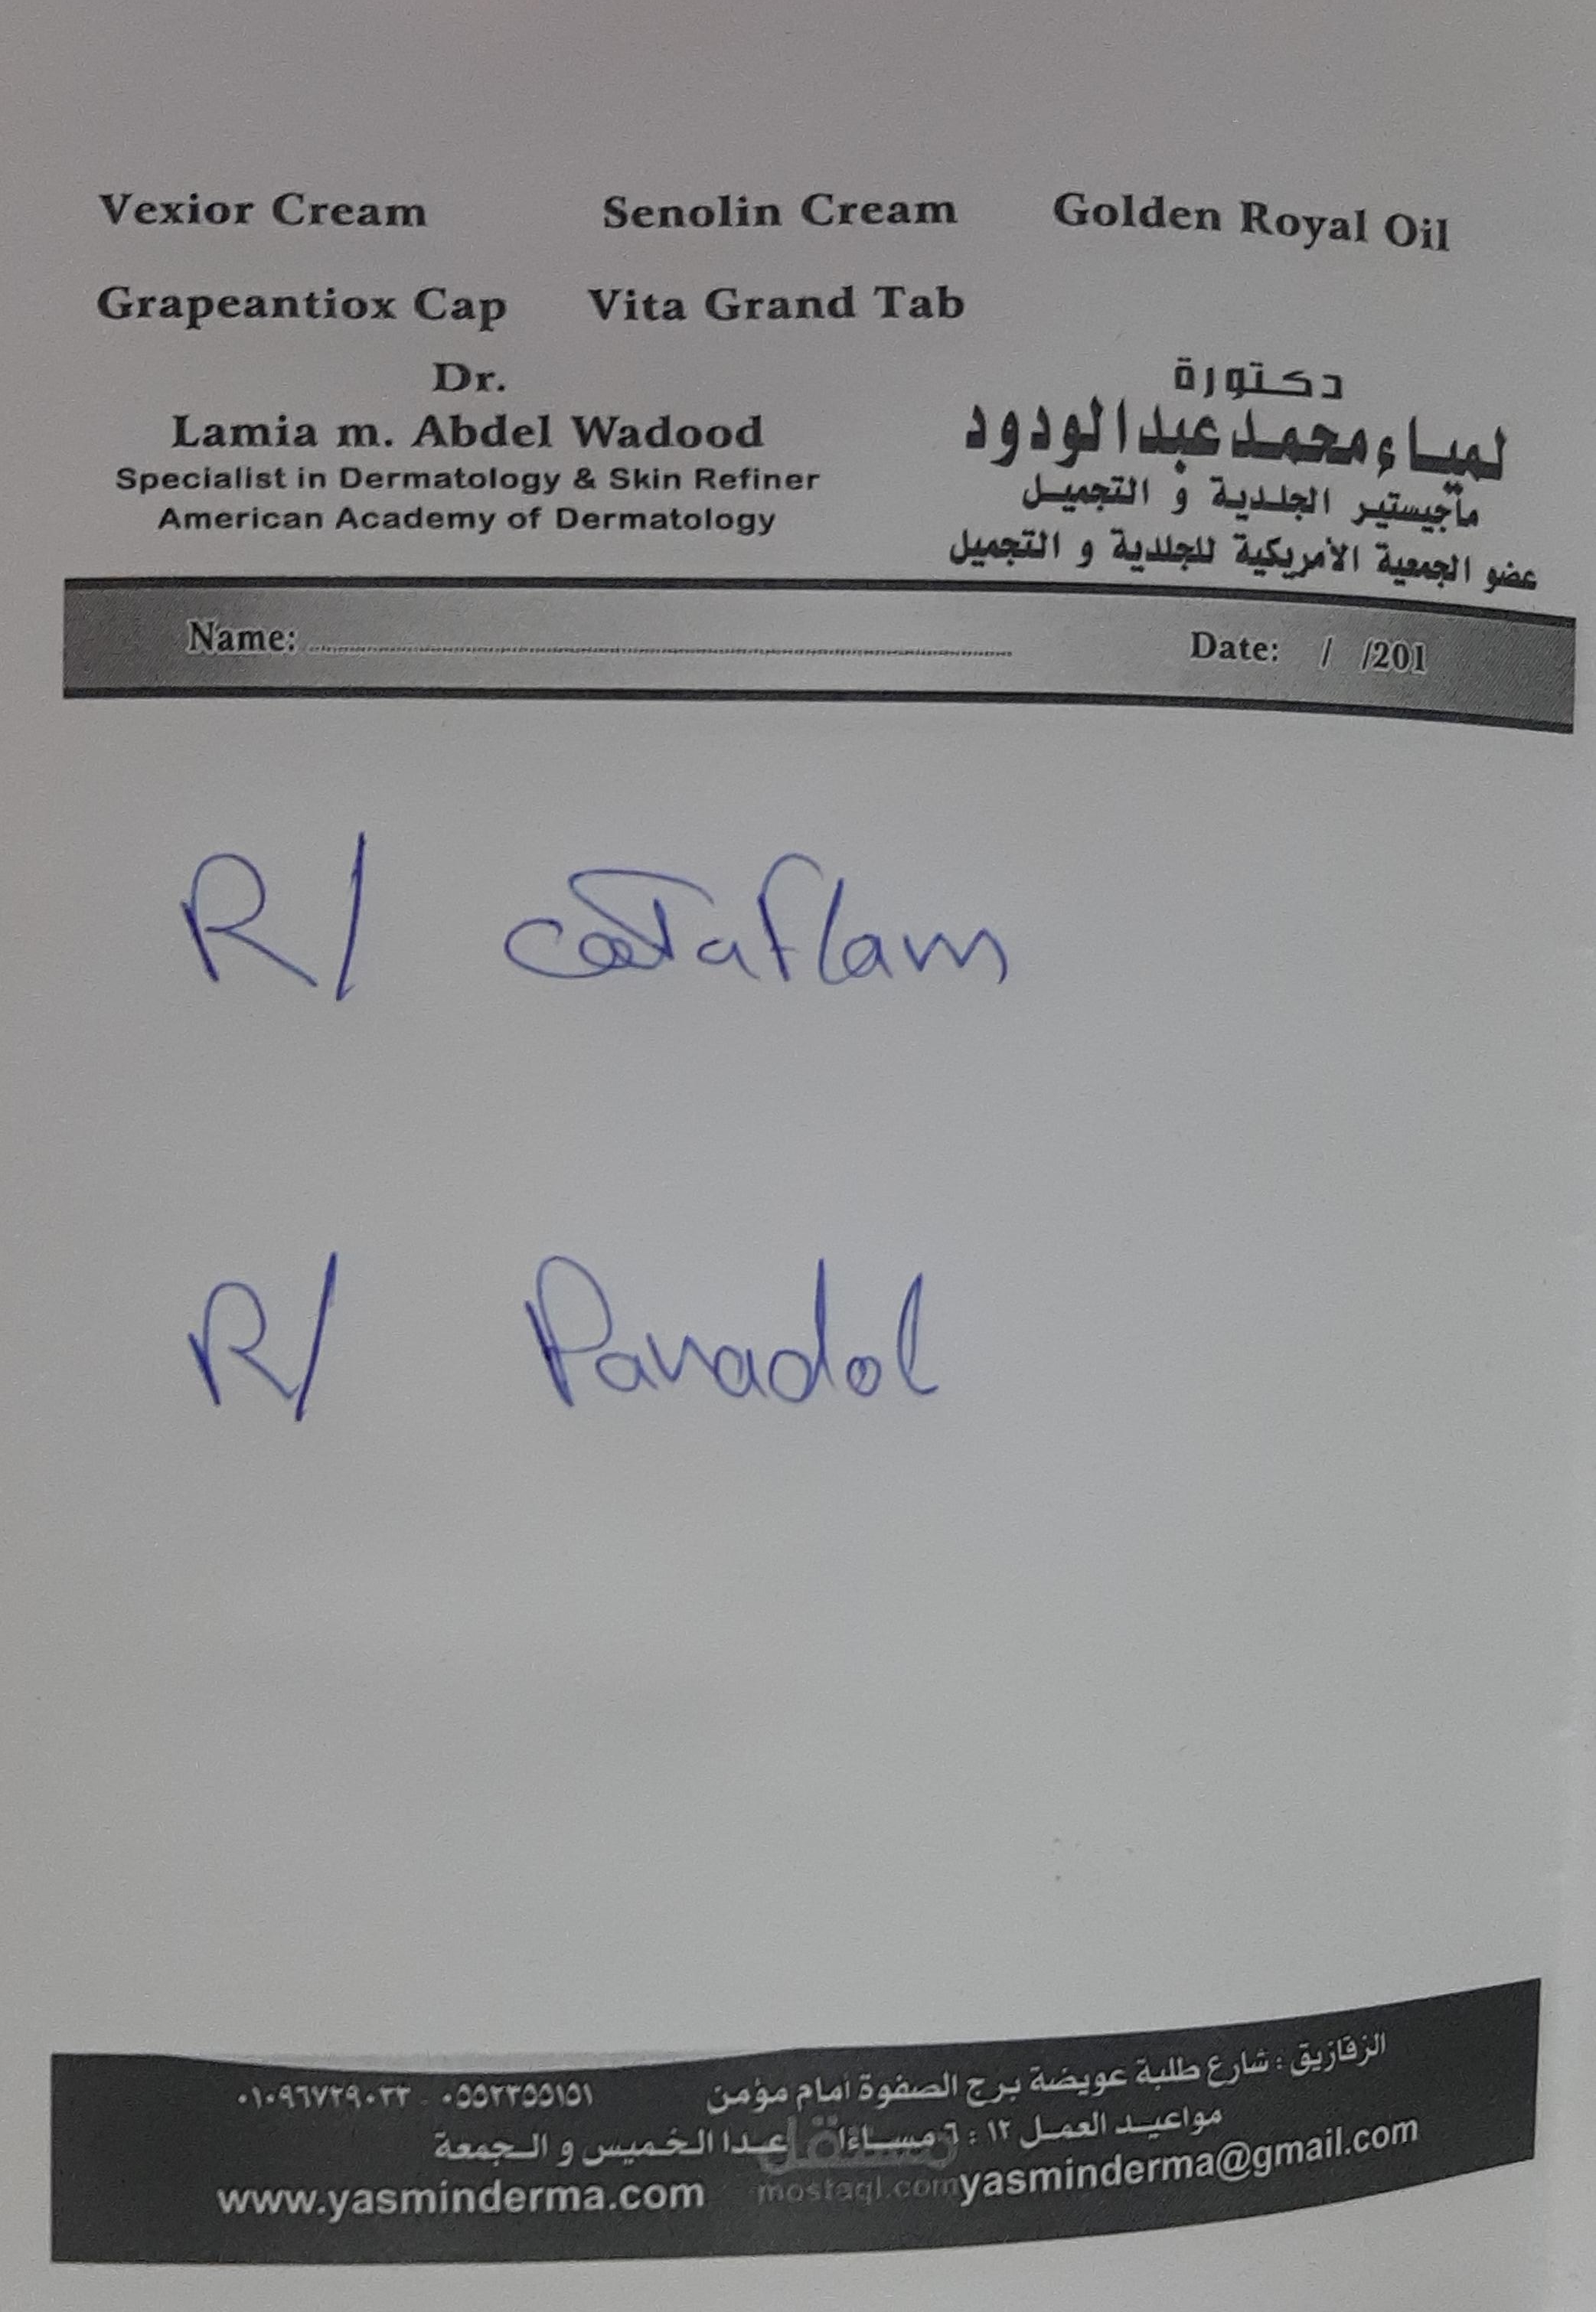 Vexior Cream Senolin Cream Golden Royal Oil
Grapeantiox Cap Vita Grand Tab
Dr.
Lamia m. Abdel Wadood
Specialist in Dermatology & Skin Refiner
American Academy of Dermatology
دكتورة
لمياء محمد عبدالودود
ماجيستير الجلدية و التجميل
عضو الجمعية الأمريكية للجلدية و التجميل
Name: Date: / /201
R/ cataflam
R/ Panadol
الزقازيق : شارع طلبة عويضة برج الصفوة أمام مؤمن ٠٥٥٢٣٥٥١٥١ - ٠١٠٩٦٧٢٩٠٢٢
مواعيد العمل ١٢ : ٦ مساءا عدا الخميس و الجمعة
www.yasminderma.com yasminderma@gmail.com
مستقل
mostaql.com